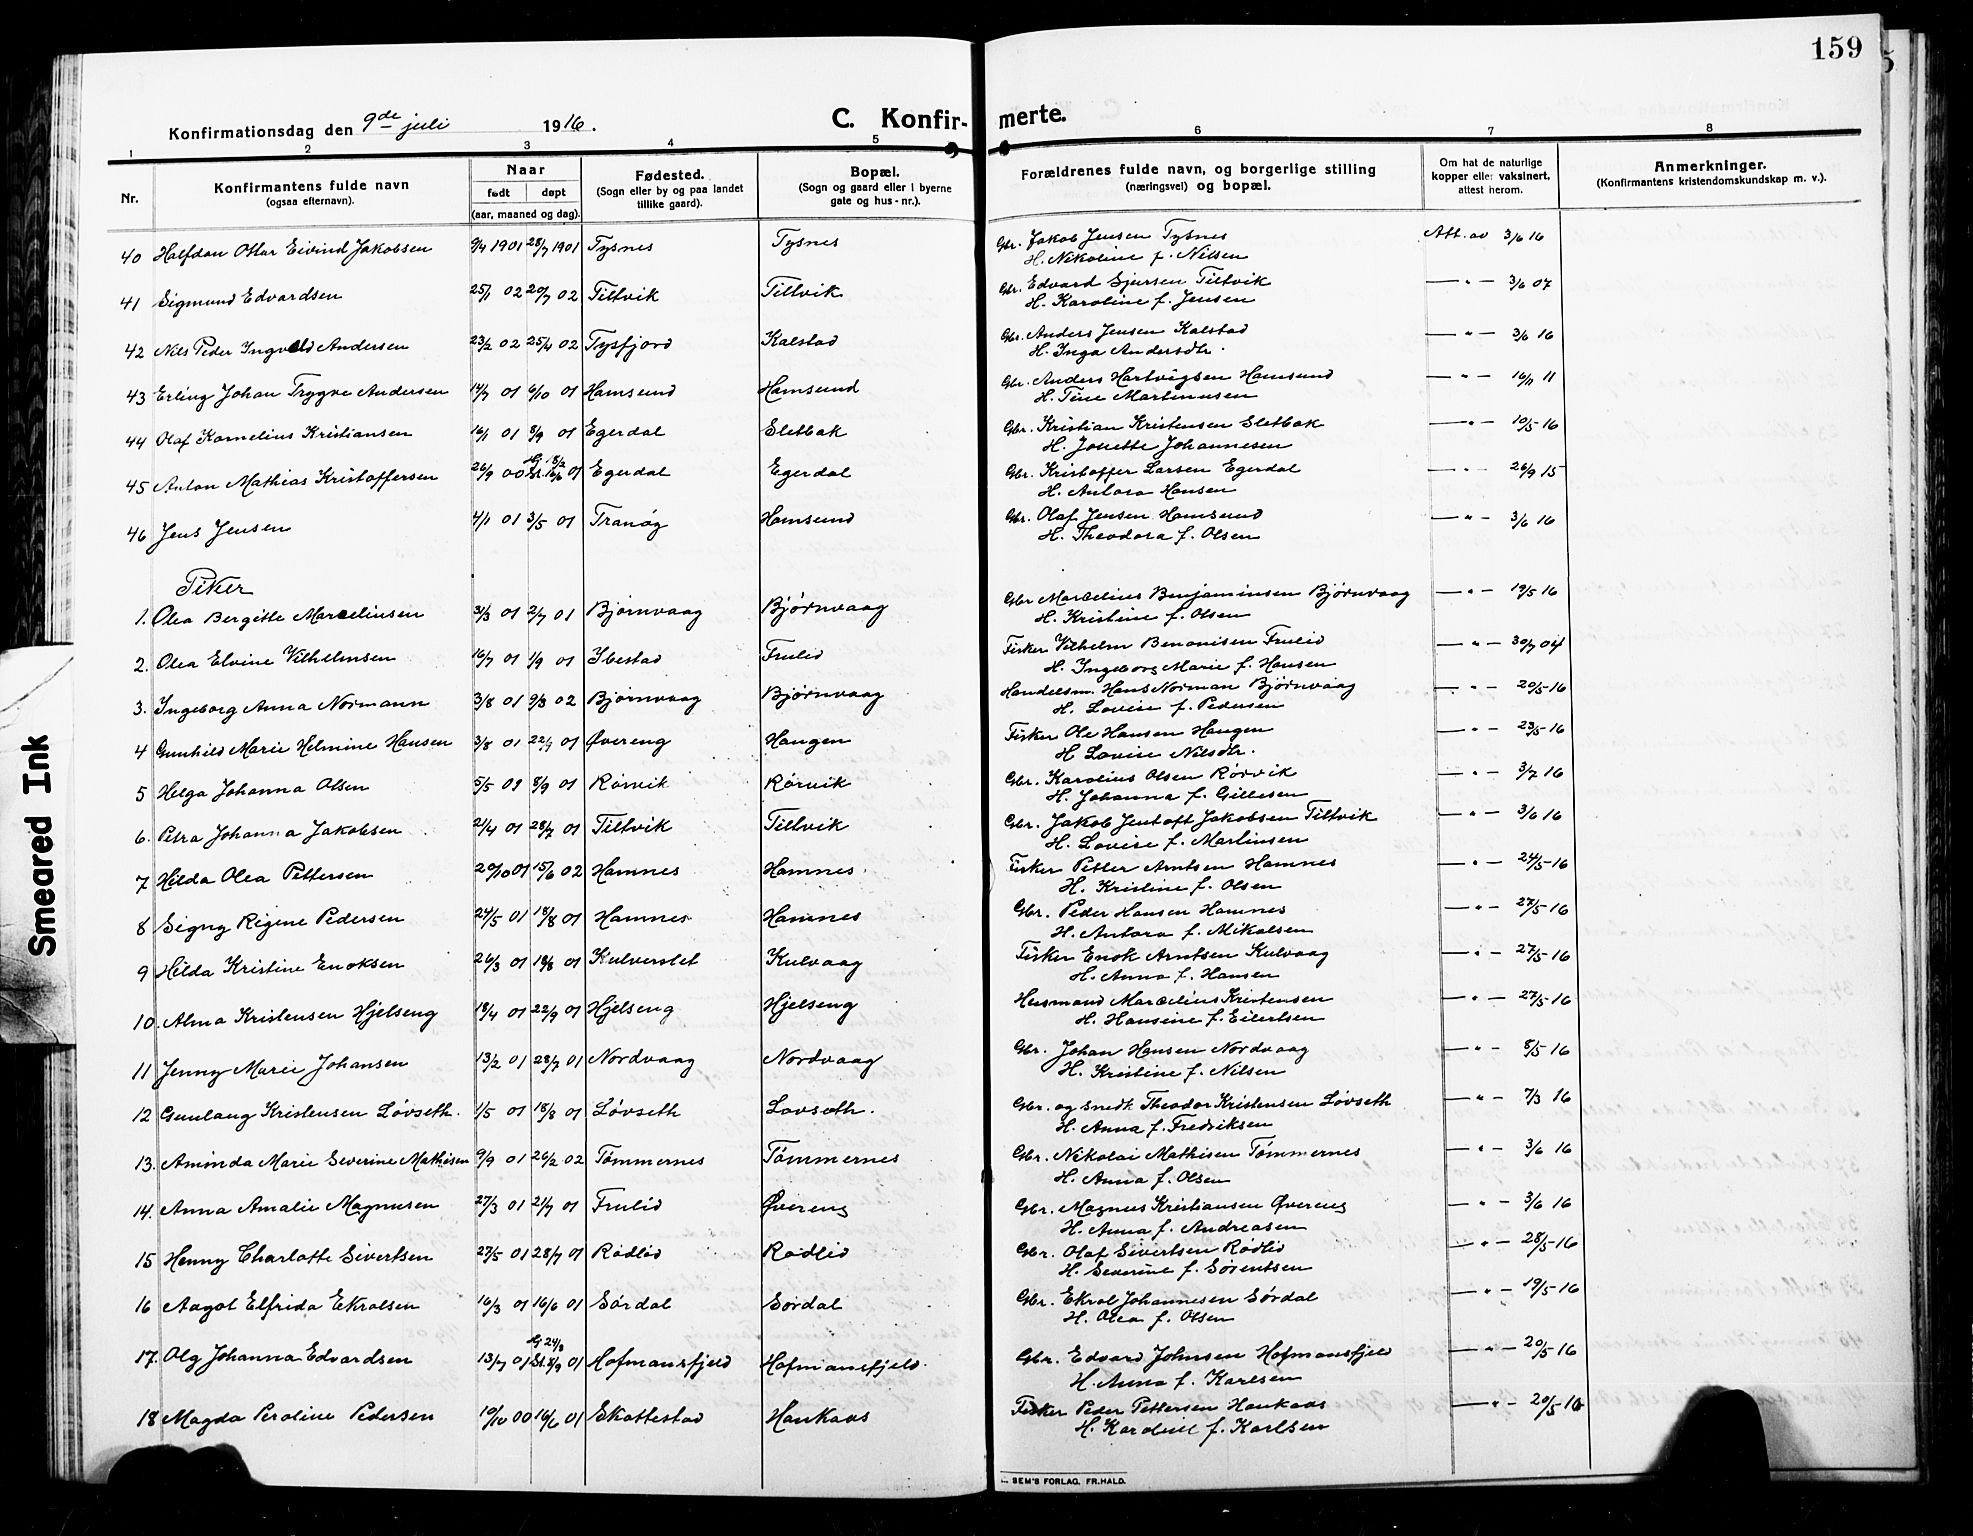 159
Konfirmationsdag den 9de juli 1916.
C. Konfir-merte.
1 2 3 4 5 6 7 8
Nr.
Konfirmantens fulde navn
(ogsaa efternavn).
Naar
født døpt
(aar, maaned og dag).
Fødested.
(Sogn eller by og paa landet
tillike gaard).
Bopæl.
(Sogn og gaard eller i byerne
gate og hus-nr.).
Forældrenes fulde navn, og borgerlige stilling
(næringsvei) og bopæl.
Om hat de naturlige
kopper eller vaksinert,
attest herom.
Anmerkninger.
(Konfirmantens kristendomskundskap m. v.).
40 Halfdan Ottar Eivind Jakobsen 9/4 1901 28/7 1901 Tysnes Tysnes Gbr. Jakob Jensen Tysnes Att. av 3/6 16
H. Nikoline f. Nilsen
41 Sigmund Edvardsen 25/1 02 20/7 02 Tiltvik Tiltvik Gbr. Edvard Sjursen Tiltvik — " — 3/6 07
H. Karoline f. Jensen
42 Nils Peder Ingvald Andersen 23/2 02 25/4 02 Tysfjord Kalstad Gbr. Anders Jensen Kalstad — " — 3/6 16
H. Inga Andersdtr.
43 Erling Johan Trygve Andersen 14/7 01 6/10 01 Hamsund Hamsund Gbr. Anders Hartvigsen Hamsund — " — 16/11 11
H. Tine Martinusen
44 Olaf Kornelius Kristiansen 16/1 01 8/9 01 Egerdal Sletbak Gbr. Kristian Kristensen Sletbak — " — 10/5-16
H. Jonette Johannesen
45 Anton Mathias Kristoffersen 26/9 00 Hj. 18/2 St. 16/6 01 Egerdal Egerdal Gbr. Kristoffer Larsen Egerdal — " — 26/9 15
H. Antora Hansen
46 Jens Jensen 4/1 01 3/5 01 Tranøy Hamsund Gbr. Olaf Jensen Hamsund — " — 3/6 16
H. Theodora f. Olsen
Piker
1. Olea Bergitte Marcelinsen 3/3 01 2/7 01 Bjørnvaag Bjørnvaag Gbr Marcelius Benjaminsen Bjørnvaag — " — 19/5 16
H. Kristine f. Olsen
2. Olea Elvine Vilhelmsen 16/7 01 1/9 01 Ibestad Frulid Fisker Vilhelm Benonisen Frulid — " — 30/7 04
H. Ingeborg Marie f. Hansen
3. Ingeborg Anna Normann 3/8 01 9/3 02 Bjørnvaag Bjørnvaag Handelsm. Hans Norman Bjørnvaag — " — 20/5-16
H. Lovise f. Pedersen
4 Gunhild Marie Helmine Hansen 3/8 01 22/9 01 Øvereng Haugen Fisker Ole Hansen Haugen — " — 23/5-16
H Lovise Nilsdtr.
5 Helga Johanna Olsen 5/5 01 8/9 01 Rørvik Rørvik Gbr. Karolius Olsen Rørvik — " — 3/7 16
H. Johanna f. Gillesen
6. Petra Johanna Jakobsen 21/4 01 28/7 01 Tiltvik Tiltvik Gbr. Jakob Jentoft Jakobsen Tiltvik — " — 3/6 16
H. Lovise f. Martinsen
7 Hilda Olea Pettersen 20/10 01 15/6 02 Hamnes Hamnes. Fisker Petter Arntsen Hamnes — " — 24/5-16
H. Kristine f. Olsen
8 Signy Regine Pedersen 24/5 01 18/8 01 Hamnes Hamnes Gbr. Peder Hansen Hamnes — " — 27/5-16
H. Antora f. Mikalsen
9 Hilda Kristine Enoksen 26/3 01 18/8 01 Kulverslet Kulvaag Fisker Enok Arntsen Kulvaag — " — 27/5-16
H. Anna f. Hansen
10. Alma Kristensen Hjelseng 18/4 01 22/9 01 Hjelseng Hjelseng Husmand Marcelius Kristensen — " — 27/5-16
H. Hansine f. Eilertsen
11 Jenny Marie Johansen 13/2 01 28/7 01 Nordvaag Nordvaag Gbr. Johan Hansen Nordvaag — " — 8/5-16
H. Kristine f. Nilsen
12 Gunlaug Kristensen Løvseth. 1/5 01 18/8 01 Løvseth Lovseth. Gbr. og snedk. Theodor Kristensen Løvseth — " — 7/3 16
H. Anna f. Fredriksen
13. Aminda Marie Severine Mathisen 9/9 01 26/2 02 Tømmernes Tømmernes Gbr. Nikolai Mathisen Tømmernes — " — 3/6 16
H. Anna f. Olsen
14. Anna Amalie Magnusen 27/3 01 21/7 01 Frulid Øvereng Gbr. Magnus Kristiansen Øvereng — " — 3/6 16
H. Anna f. Andreasen
15 Henny Charlotte Sivertsen 27/5 01 28/7 01 Rødlid Rødlid Gbr. Olaf Sivertsen Rødlid — " — 28/5-16
H. Severine f. Sørentsen
16 Aagot Elfrida Ekrolsen 16/3 01 16/6 01 Sørdal Sørdal Gbr. Ekrol Johannesen Sørdal — " — 19/5-16
H. Olea f. Olsen
17. Olg Johanna Edvardsen 13/7 01 Hj 24/8 St. 8/9 01 Hofmansfjeld Hofmansfjeld. Gbr. Edvard Johnsen Hofmansfjeld — " — 20/5 16
H. Anna f. Karlsen
18 Magda Peroline Pedersen 10/10 00 16/6 01 Skottestad Haukaas Fisker Peder Pettersen Haukaas — " — 20/5 16
H. Karoline f. Karlsen
SEM'S FORLAG, FR.HALD.
Smeared Ink